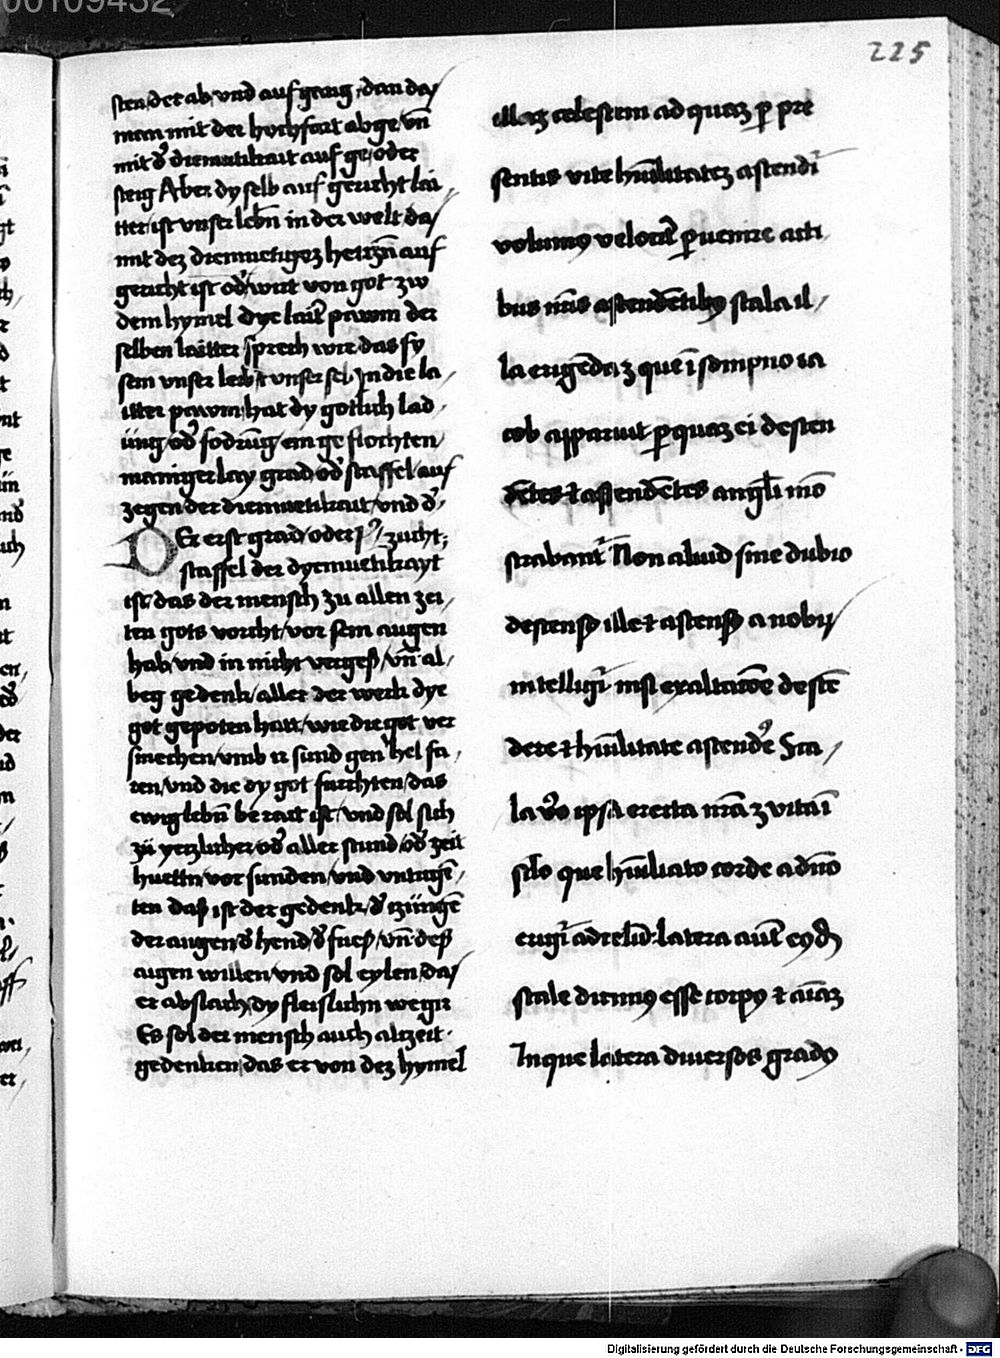 00109432
225
sten, der ab, vnd auf geang, dan das
man mit der hochfart abge, vn̄
mit d' diemutikait auf ge, oder
steig Aber dy selb auf gericht lai,
tter, ist vnser lebn̄ in der welt das
mit dez diemuetigez herczn̄ auf
gericht ist od' wirt von got zw
dem hymel Dye lait' pawm der
selben laitter sprech wir das sy
sein vnser leib, vnser sel, In die la,
itter pawm hat dy gotlich lad,
ūng, od' fodrūg, ein ge flochten,
maniger lay grad, od' staffel, auf
zegen der diemuetikait, vnd d',
DEr erst grad, oder zucht,
staffel der dyemuetikayt
ist, das der mensch zu allen zei,
ten gots vorcht, vor sein augen
hab, vnd in nicht verges, vn̄ al,
beg gedenk, aller der werk dye
got gepoten hatt, wie die got ver
smechen, vmb ir sund gen hel fa,
ren, vnd die dy got furchten, das
ewig lebn̄ be rait ist, vnd sol sich
zü yetzlicher, od' aller stund, od' zeit
huettn, vor sunden, vnd vntugē,
ten das ist der gedenk, d' zūngē
der augen, d' hend, d' fuess, vn̄ dess
aigen willen, vnd sol eylen, das
er abslach, dy fleislichn wegir
Es sol der mensch auch altzeit
gedenken, das er von dez hymel
illaz celestem ad quaz p pre
sentis vite hūilitatez ascendi
volumus velocit' puenire acti
bus nr̄is ascendētibus scala il,
la erigēda z que ī sompno ia
cob apparuit p quaz ei descen
dētes et ascendētes angeli mō
strabant' Non aliud sine dubio
descensus ille et ascensus a nobis
intelligi' nisi exaltacōe descē
dere et hūilitate ascende' Sca,
la v'o ipsa erecta nr̄a z vita ī
sclo que hūiliato corde a dn̄o
erigi' ad celū latera aut' eiusdē
scale dicimus esse corpus et aīaz
In que latera diuersos gradus
Digitalisierung gefördert durch die Deutsche Forschungsgemeinschaft - DFG